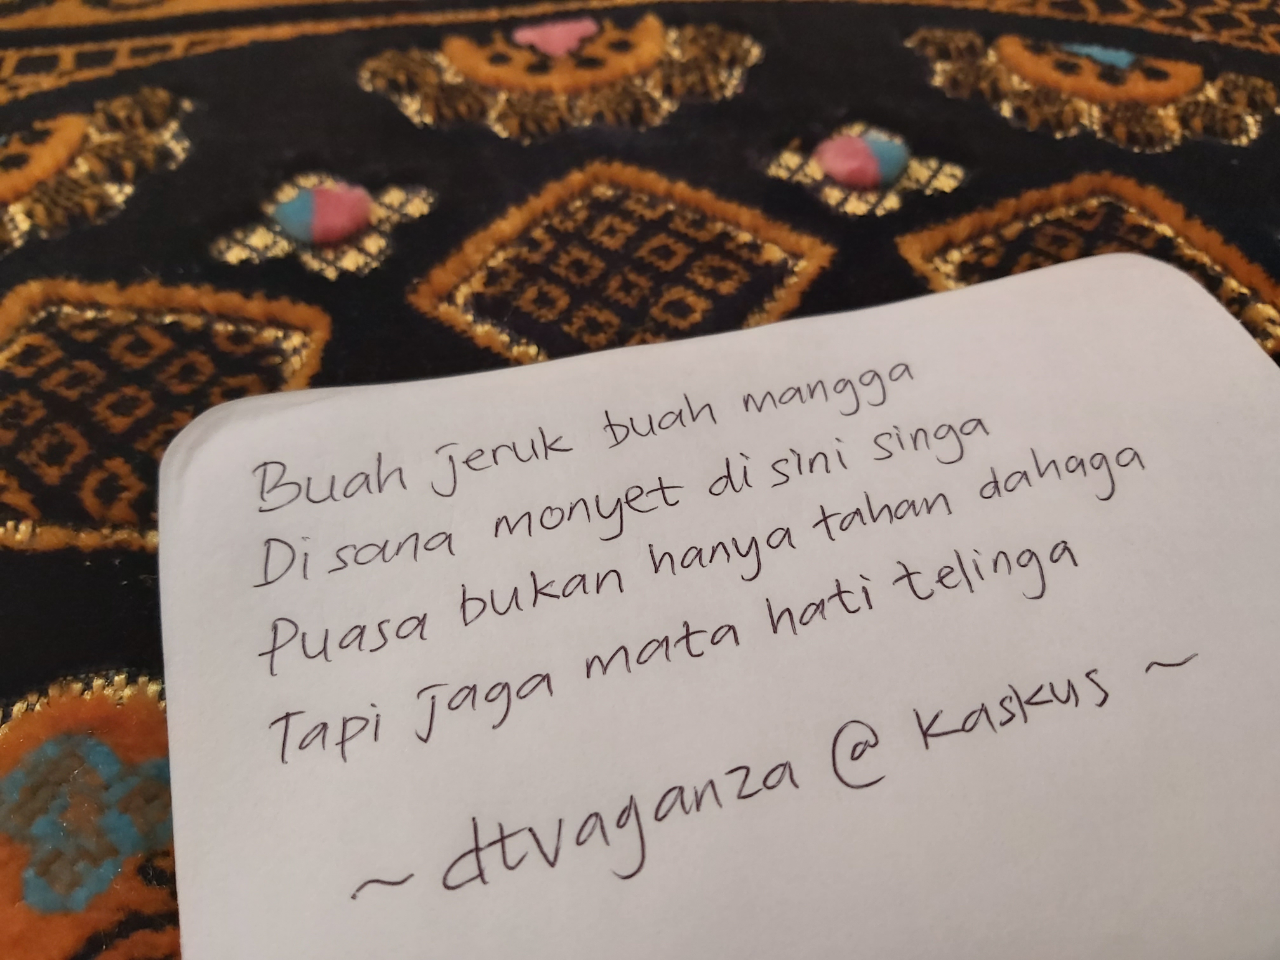 Buah jeruk buah mangga
Di sana monyet di sini singa
Puasa bukan hanya tahan dahaga
Tapi jaga mata hati telinga
~ dtvaganza @ kaskus ~